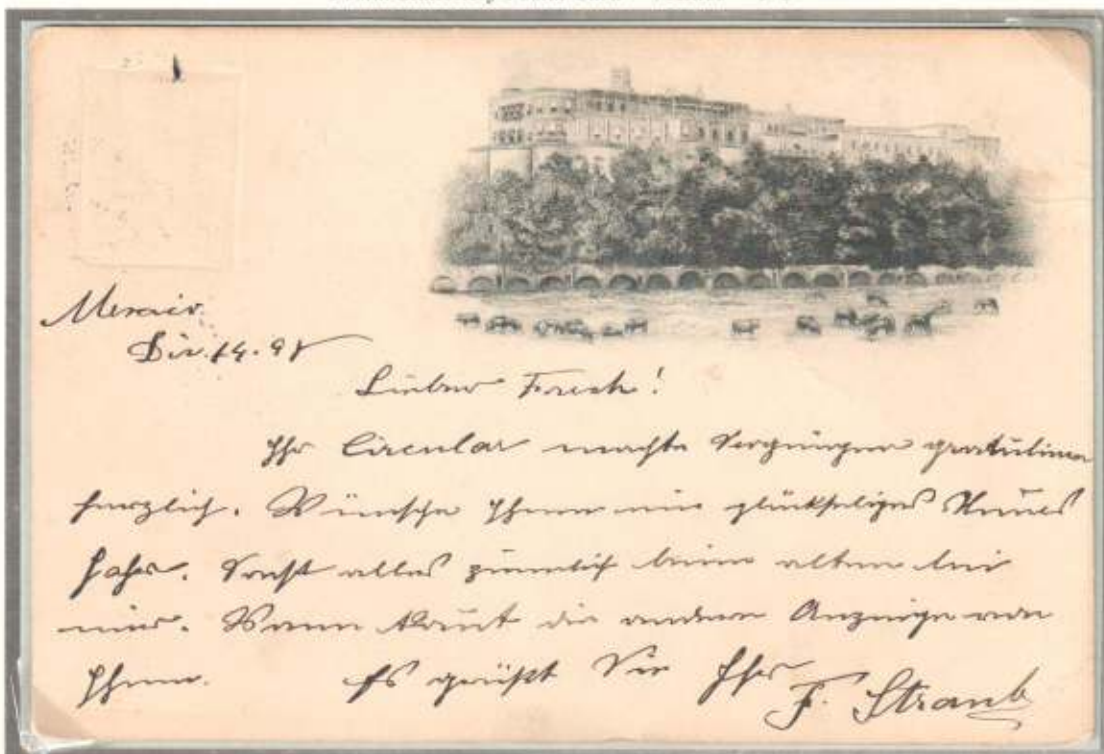 Mexico
Dez. 14. 98
Lieber Freck!
Ihr Circular machte Vergnügen gratuliere
herzlich. Wünsche Ihnen ein glückseliges Neues
Jahr. Sonst alles ziemlich beim alten bei
mir. Wann kommt die andere Anzeige von
Ihnen. Es grüßt Sie Ihr
F. Straub